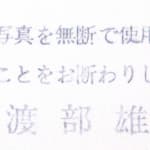 写真を無断で使用
ことをお断わりし
渡部雄